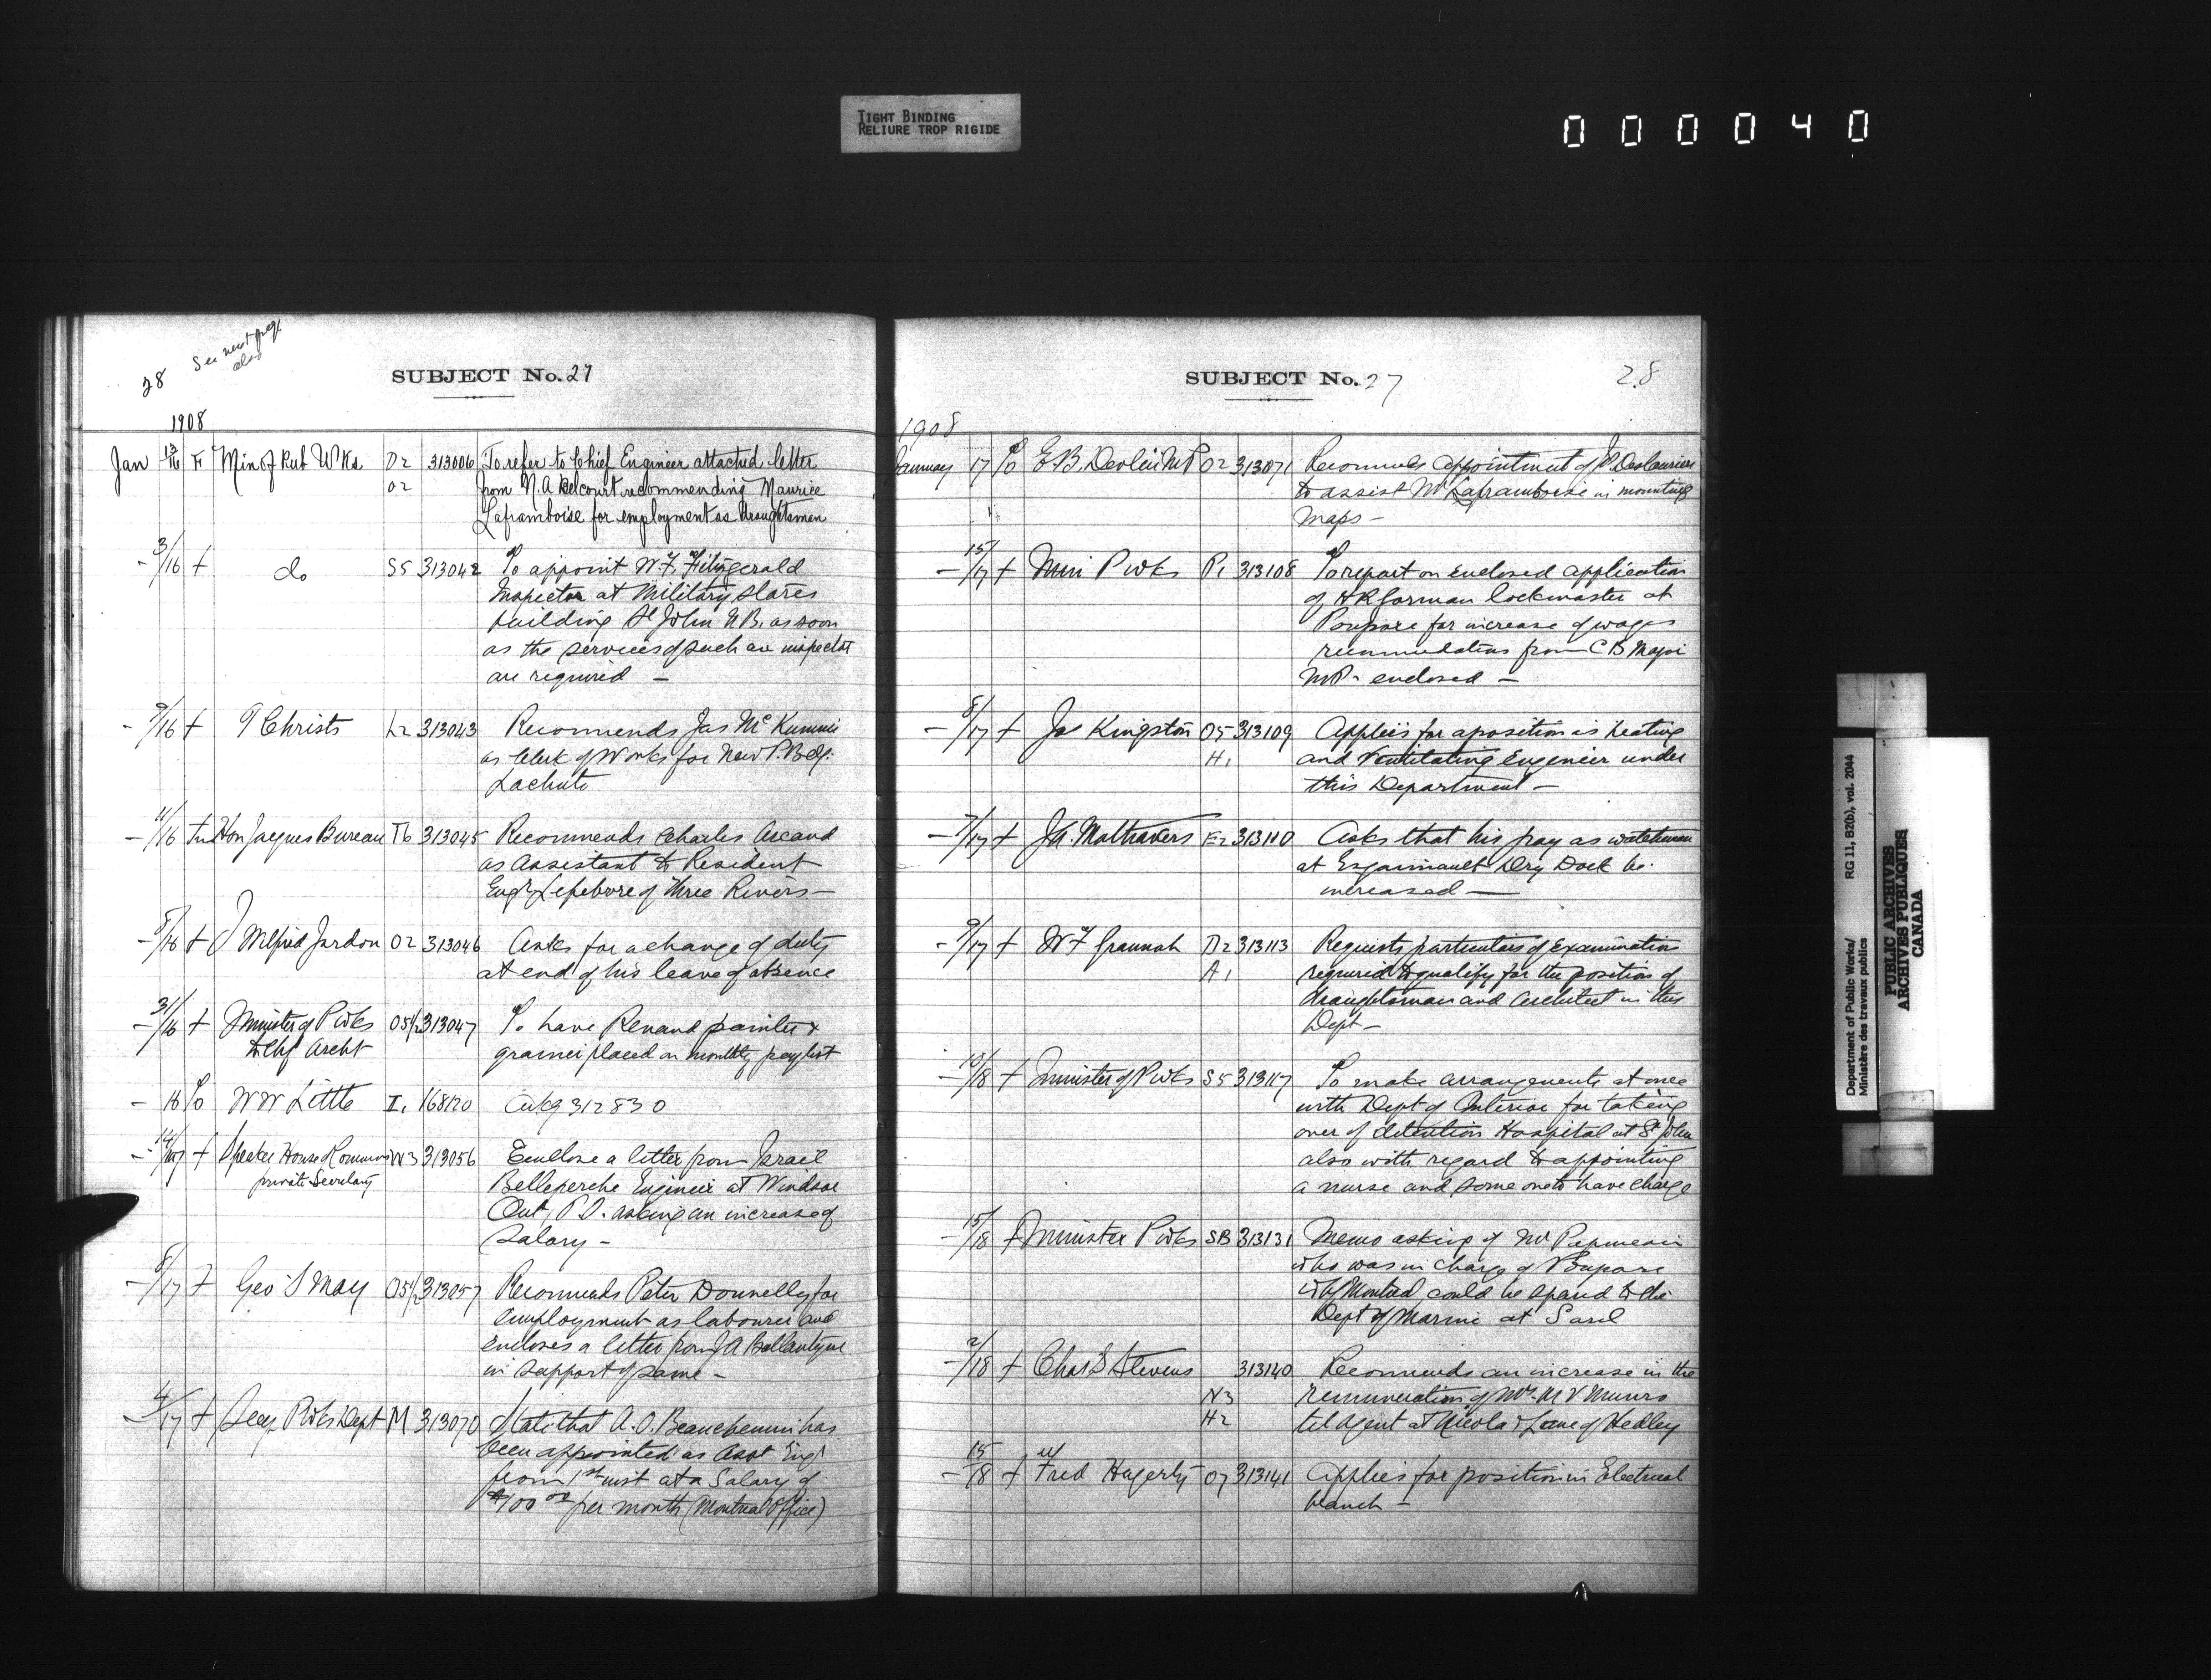 TIGHT BINDING
RELIURE TROP RIGIDE
000040
28
See next page
also
SUBJECT No. 27
1908
Jan 13/16 F Min of Pub Wks D2 313006 To refer to Chief Engineer attached letter
O2 from N.A Belcourt recommending Maurice
Laframboise for employment as draughtsman
- 3/16 + do S5 313042 To appoint W.F. Fitzgerald
Inspector at Military Stores
building St John N.B. as soon
as the services of such an inspector
are required -
- /16 + T Christs L2 313043 Recommends Jas McKimmie
as Clerk of Works for New P. Bdg.
Lachute
- 11/16 Hon Jacques Bureau T6 313045 Recommends Charles Ascand
as Assistant to Resident
Engr Lefebvre of Three Rivers -
- /16 + J Wilfred Jardon O2 313046 Asks for a change of duty
at end of his leave of absence
- 31/16 + Minister of P Wks O5 1/2 313047 To have Renaud painter &
to Chf Archt grainer placed on monthly pay list
- 16 W W Little I1 168120 Ackg 312830
- + Speaker House of Commons W3 313056 Enclose a letter from Israil
private Secretary Belleperche Engineer at Windsor
Ont, P.O. asking an increase of
Salary -
- 8/17 + Geo S May O5 1/2 313057 Recommends Peter Donnelly for
employment as labourer and
encloses a letter from J A Ballantyne
in support of same -
- 4/17 + Secy P Wks Dept M 313070 States that A.O. Beauchemin has
been appointed as Asst Engr
from 1st inst at a Salary of
$100 00 per month (Montreal Office)
SUBJECT No. 27
28
1908
January 17 E.B. Devlin MP O2 313071 Recommends appointment of J.P. Deslauriers
to assist Mr Laframboise in mounting
maps -
- 15/17 + Min P Wks P1 313108 To report on enclosed application
of H R Gorman lockmaster at
Poupore for increase of wages
recommendation from C B Major
M.P. enclosed -
- 8/17 + Jos Kingston O5 313109 Applies for a position as heating
H1 and Ventilating Engineer under
this Department -
- 7/17 + J.A. Maltravers E2 313110 Asks that his pay as watchman
at Esquimault Dry Dock be
increased -
- 9/17 + W F Grannah D2 313113 Requests particulars of Examination
A1 required to qualify for the position of
draughtsman and Architect in this
Dept -
- 10/18 + Minister of P Wks S5 313117 To make arrangements at once
with Dept of Interior for taking
over of detention Hospital at St John
also with regard to appointing
a nurse and some one to have charge
- 15/18 + Minister P Wks SB 313131 Memo asking if Mr
who was in charge of Poupore
Montreal could be spared to the
Dept of Marine at Sorel
- 2/18 + Chas S Stevens 313140 Recommends an increase in the
N3 remuneration of Mr. M V Munro
H2 tel Agent at Nicola & Lane of Hedley
- 15/18 + Fred Hagerty O7 313141 Applies for position in Electrical
branch -
Department of Public Works/ RG 11, B2(b), vol. 2044
Ministère des travaux publics
PUBLIC ARCHIVES
ARCHIVES PUBLIQUES
CANADA